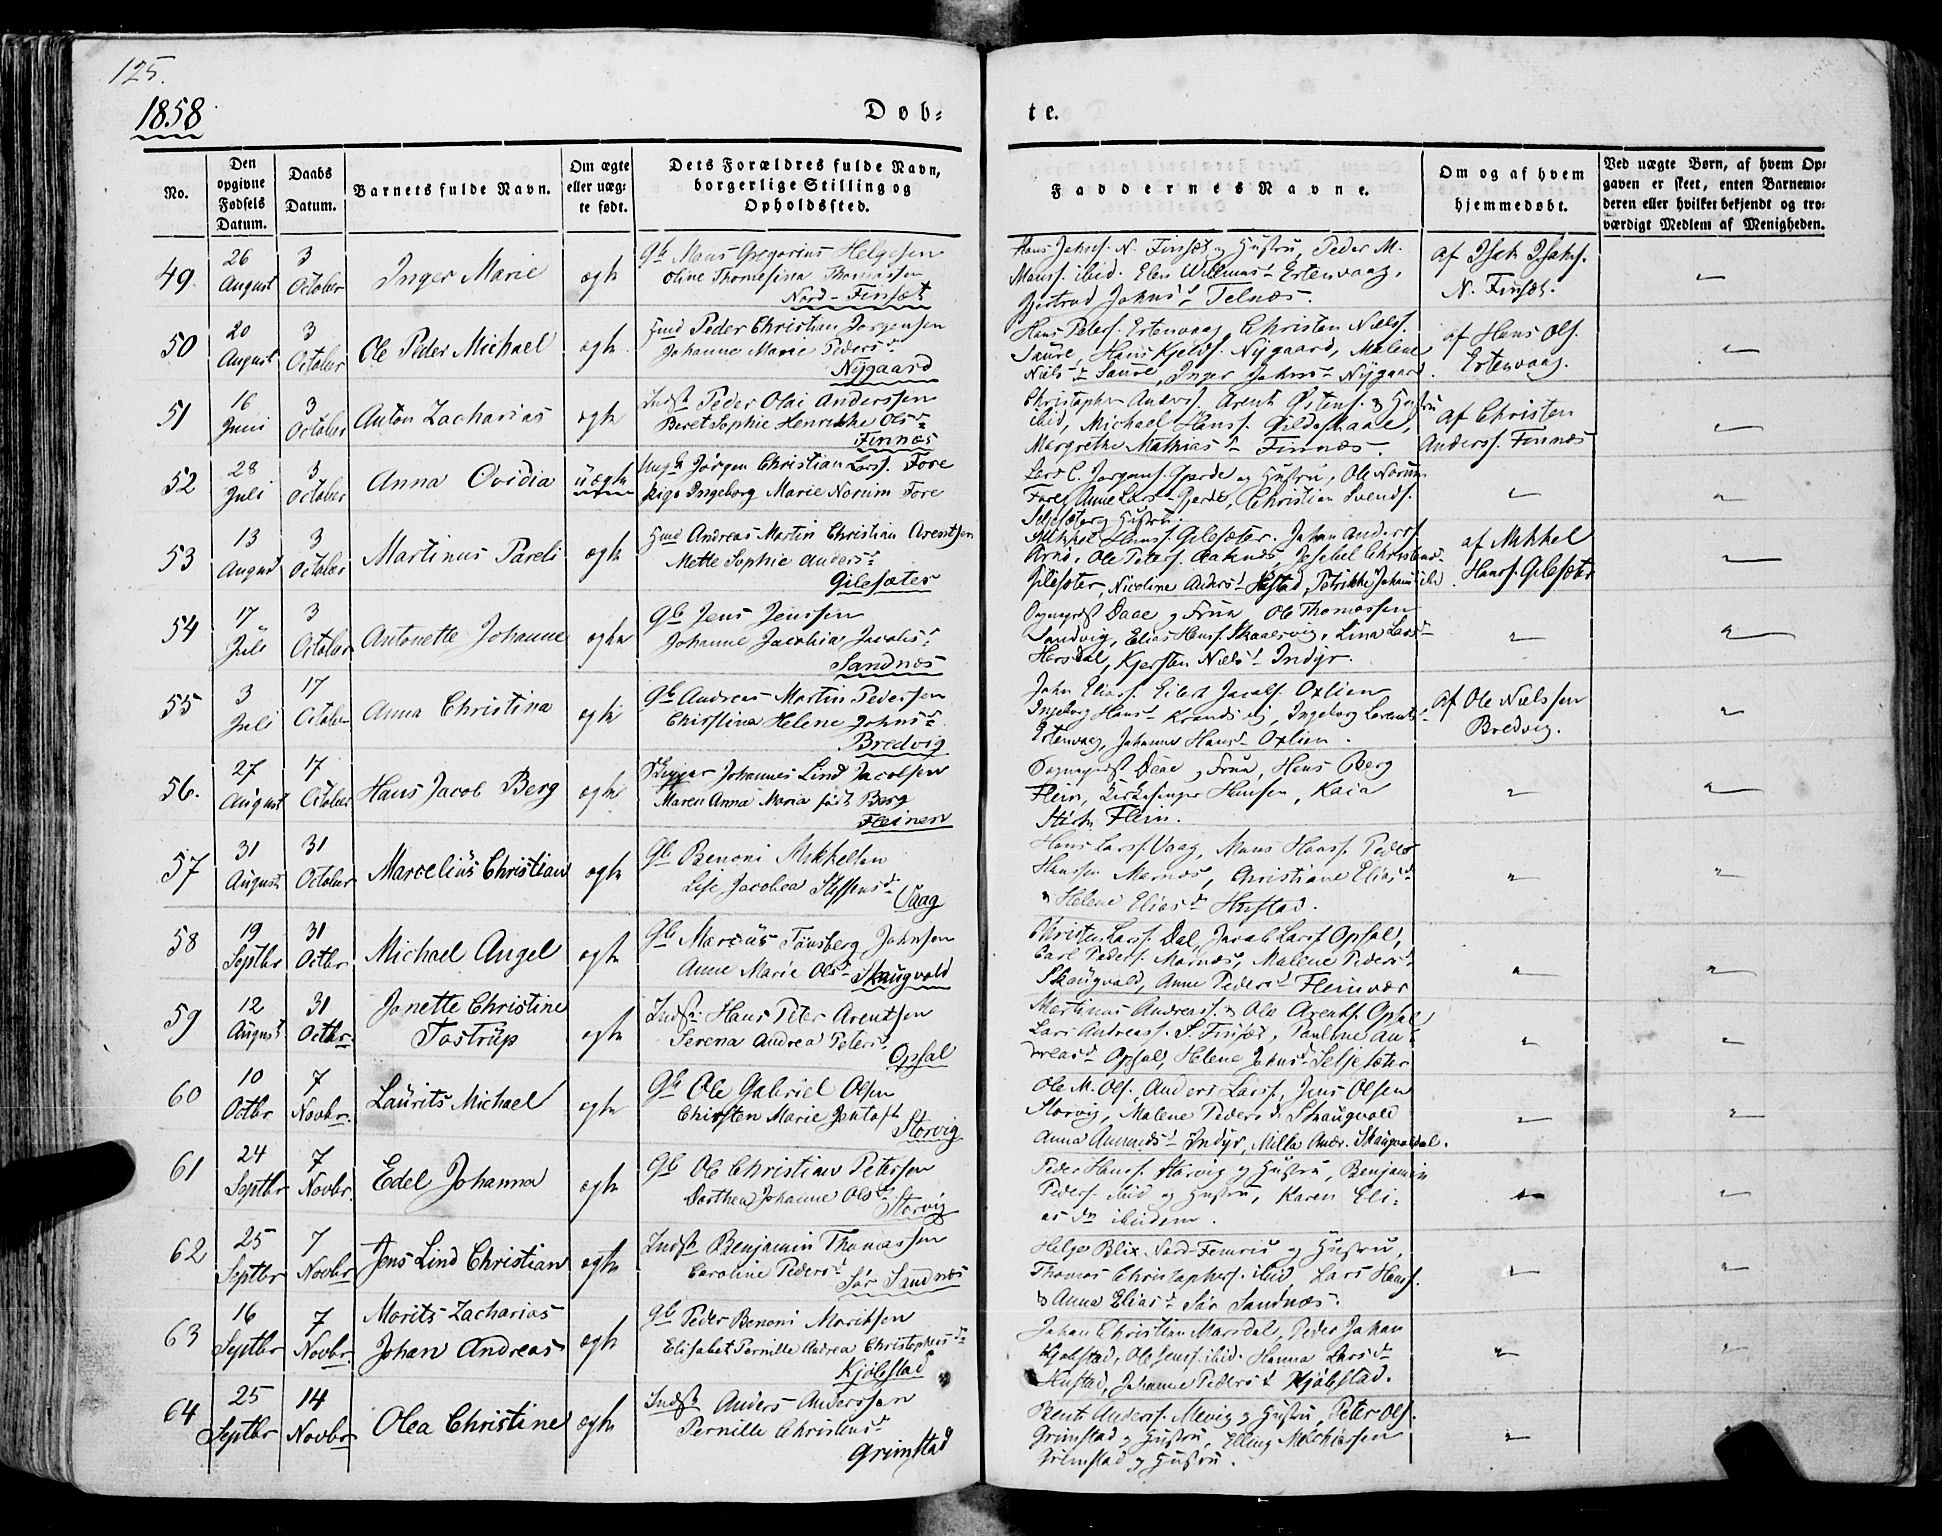 125.
1858
Døb-
te.
No.
Den opgivne Fødsels Datum.
Daabs Datum.
Barnets fulde Navn.
Om ægte eller uæg-te født.
Dets Forældres fulde Navn, borgerlige Stilling og Opholdssted.
Faddernes Navne.
Om og af hvem hjemmedøbt.
Ved uægte Børn, af hvem Op-gaven er skeet, enten Barnemo-deren eller hvilket bekjendt og tro-værdigt Medlem af Menigheden.
49. 26 August 3 October Inger Marie ægte
Gb Mans Gregorius Helgesen
Oline Thomesina Thomassen
Nord-Finsæt
Hans Jakobs. N. Finsæt og Hustru, Peder M.
Mans. ibid. Elen Willums d Ertenvaag,
Gjertrud Johns d Telnæs.
af Isak Isaks.
N. Finsæt.
50 20 August 3 October Ole Peder Michael ægte
Hmd Peder Christian Jørgensen
Johanne Marie Peders d
Nygaard
Hans Peters. Ertenvaag, Christen Niels.
Saure, Hans Kjelds. Nygaard, Malene
Niels d Saure, Inger Johns d Nygaard.
af Hans Ols.
Ertenvaag.
51 16 Juni 3 October Anton Zacharias ægte
Indst Peder Olai Anderssen
Beret Sophie Henrikke Ols d
Finnæs
Christopher Anders. Arent Østens. & Hustru
ibid, Michael Hans. Gildeskaal,
Margrethe Mathias d Finnæs.
af Christen
Anderss. Finnæs
52 28 Juli 3 October Anna Ovidia uægte
Ungk Jørgen Christian Lars. Fore
Pige Ingeborg Marie Norum Fore
Lars C. Jørgens. Gjerde og Hustru, Ole Norum
Fore, Anne Lars d Gjerde, Christian Svends.
Seljesæter og Hustru.
53 13 August 3 October Martinus Pareli ægte
Hmd Andreas Martin Christian Arentsen
Mette Sophie Anders d
Gilesæter
Mikkel Hans. Gilesæter. Johan Anders.
Arnø, Ole Peters. Jesebel Christens d
Gilesæter, Nicoline Anders d Hustad, Petrikke Johans d ibid
af Mikkel
Hans. Gilesæter
54 17 Juli 3 October Antonette Johanne ægte
Gb Jens Jenssen
Johanne Jacobia Jacobs d
Sandnæs
Sognepræst Daae og Frue Ole Thomassen
Sandvig, Elias Hans. Skaalsvig, Lina Lars d
Horsdal, Kjersten Niels d Indyr.
55 3 Juli 17 October Anna Christina ægte
Gb Andreas Martin Pedersen
Christina Helene Johns d
Bredvig
John Elias. Eilert Jacobs. Oxlien
Ingeborg Hans d Ingeborg Lorents d
Ertenvaag, Johanna Hans d Oxlien.
af Ole Nielssen
Bredvig.
56. 27 August 17 October Hans Jacob Berg ægte
Skipper Johannes Lind Jacobsen
Maren Anna Maria født Berg
Fleinen
Sognepræst Daae og Frue, Hans Berg
Flein, Kirkesanger Hansen, Kaia
Flein.
57 31 August 31 October Marcelius Christian ægte
Gb Benoni Mikkelsen
Lise Jacobea Steffens d
Vaag
Hans Lars. Vaag, Mans Hans. Peder
Hanssen Mernæs, Christiane Elias d
& Helene Elias d Hustad.
58 19 Septbr 31 Octbr. Michael Angel ægte
Gb Marcus Tønsberg Johnsen
Anne Marie Ols d Skaugvold
Christen Lars. Dal, Jacob Lars. Opsal,
Carl Peders. Mernæs, Malene Peders d
Skaugvald, Anne Peders d Fleinvær
59 12 August 31 Octbr. Janette Christine Tostrup ægte
Indst. Hans Peter Arentsen
Serena Andrea Peters d
Opsal
Martinus Andreas. & Ole Arents. Opsal
Lars Andreas. S. Finsæt, Pauline An-
dreas d Opsal, Helene Johns d Seljesæter
60 10 Octbr 7 Novbr. Laurits Michael ægte
Gb Ole Gabriel Olsen
Chirsten Marie Jentoft
Storvig
Ole M. Ols. Anders Lars., Jens Olsen
Storvig, Malene Peders d Skaugvold
Anna Amunds d Indyr, Milla Andr. Skaugvoldal.
61 24 Septbr 7 Novbr. Edel Johanna ægte
Gb Ole Christian Petersen
Dorthea Johanne Ols d
Storvig
Peder Hans. Storvig og Hustru, Benjamin
Peders. ibid og Hustru, Karen Eli-
as dr ibidem.
62 25 Septbr 7 Novbr Jens Lind Christian ægte
Indst Benjamin Thomassen
Caroline Peders d
Sør Sandnæs
Helge Blix Nord-Femris og Hustru,
Thomas Christophers. ibid, Lars Hans.
& Anna Elias d Sør Sandnæs.
63 16 Septbr 7 Novbr. Morits Zacharias Johan Andreas ægte
Gb Peder Benoni Moritsen
Elisabet Pernille Andrea Christophers d
Kjølstad
Johan Christian Marsdal, Peder Johan
Kjølstad, Ole Jens. ibid. Hanna Lars d
Hustad, Johanne Peders d Kjølstad.
64 25 Septbr 14 Novbr. Olea Christine ægte
Indst Anders Anderssen
Pernille Christens d
Grimstad
Bent Anders. Mevig og Hustru, Peter Ols.
Grimstad og Hustru, Elling Melchiorsen
Grimstad og Hustru.